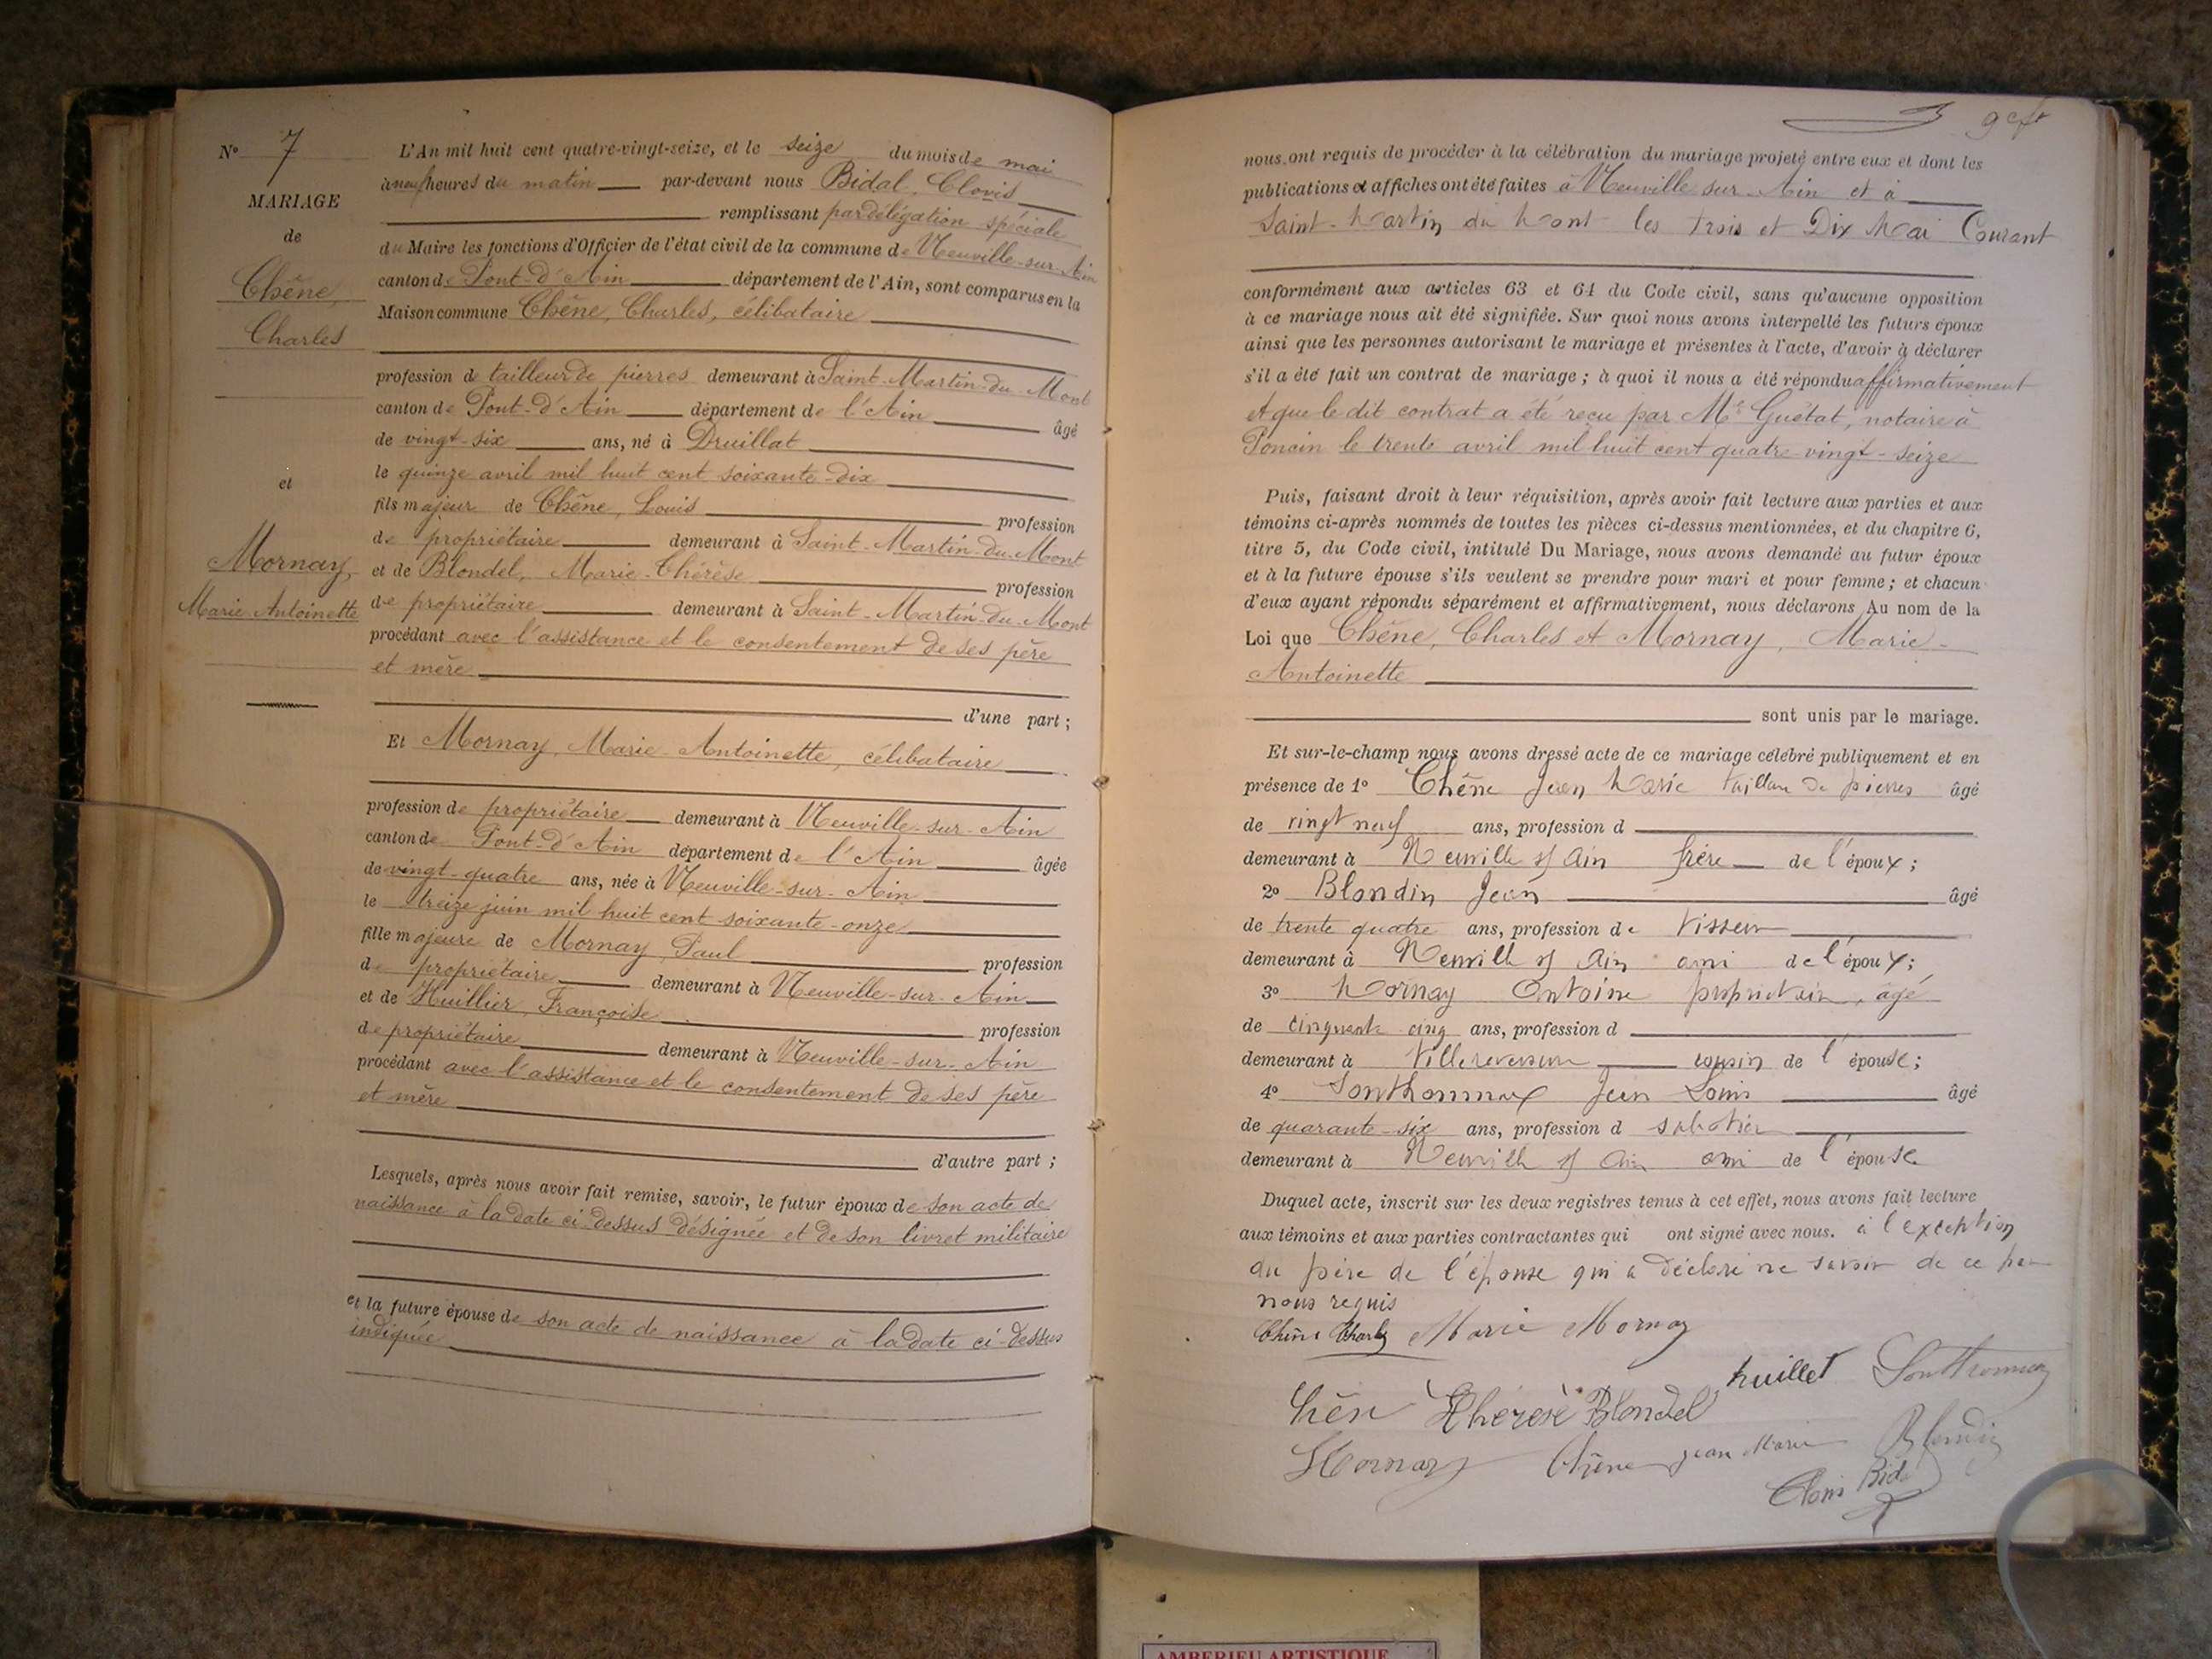 N° 7
MARIAGE
de
Chêne,
Charles
et
Mornay,
Marie Antoinette
L'An mil huit cent quatre-vingt-seize, et le seize du mois de mai
à neuf heures du matin par-devant nous Bidal, Clovis
remplissant par délégation spéciale
du Maire les fonctions d'Officier de l'état civil de la commune de Neuville-sur-Ain
canton de Pont-d'Ain département de l'Ain, sont comparus en la
Maison commune Chêne, Charles, célibataire
profession de tailleur de pierres demeurant à Saint-Martin-du-Mont
canton de Pont-d'Ain département de l'Ain âgé
de vingt-six ans, né à Druillat
le quinze avril mil huit cent soixante-dix
fils majeur de Chêne, Louis profession
de propriétaire demeurant à Saint-Martin-du-Mont
et de Blondel, Marie-Thérèse profession
de propriétaire demeurant à Saint-Martin-du-Mont
procédant avec l'assistance et le consentement de ses père
et mère
d'une part ;
Et Mornay, Marie-Antoinette, célibataire
profession de propriétaire demeurant à Neuville-sur-Ain
canton de Pont-d'Ain département de l'Ain âgée
de vingt-quatre ans, née à Neuville-sur-Ain
le treize juin mil huit cent soixante-onze
fille majeure de Mornay, Paul profession
de propriétaire demeurant à Neuville-sur-Ain
et de Huillier, Françoise profession
de propriétaire demeurant à Neuville-sur-Ain
procédant avec l'assistance et le consentement de ses père
et mère
d'autre part ;
Lesquels, après nous avoir fait remise, savoir, le futur époux de son acte de
naissance à la date ci-dessus désignée et de son livret militaire
et la future épouse de son acte de naissance à la date ci-dessus
indiquée
nous ont requis de procéder à la célébration du mariage projeté entre eux et dont les
publications et affiches ont été faites à Neuville-sur-Ain et à
Saint-Martin du Mont les trois et Dix Mai Courant
conformément aux articles 63 et 64 du Code civil, sans qu'aucune opposition
à ce mariage nous ait été signifiée. Sur quoi nous avons interpellé les futurs époux
ainsi que les personnes autorisant le mariage et présentes à l'acte, d'avoir à déclarer
s'il a été fait un contrat de mariage ; à quoi il nous a été répondu affirmativement
et que le dit contrat a été reçu par Me Guétat, notaire à
Poncin le trente avril mil huit cent quatre-vingt-seize
Puis, faisant droit à leur réquisition, après avoir fait lecture aux parties et aux
témoins ci-après nommés de toutes les pièces ci-dessus mentionnées, et du chapitre 6,
titre 5, du Code civil, intitulé Du Mariage, nous avons demandé au futur époux
et à la future épouse s'ils veulent se prendre pour mari et pour femme ; et chacun
d'eux ayant répondu séparément et affirmativement, nous déclarons Au nom de la
Loi que Chêne, Charles et Mornay, Marie-
Antoinette
sont unis par le mariage.
Et sur-le-champ nous avons dressé acte de ce mariage célébré publiquement et en
présence de 1° Chêne Jean Marie tailleur de pierres âgé
de vingt neuf ans, profession d
demeurant à Neuville s/ Ain frère de l'époux ;
2° Blondin Jean âgé
de trente quatre ans, profession de tisseur
demeurant à Neuville s/ Ain ami de l'époux ;
3° Mornay Antoine propriétaire, âgé
de cinquante cinq ans, profession d
demeurant à Villereversure cousin de l'épouse ;
4° Sonthonnax Jean Louis âgé
de quarante-six ans, profession d sabotier
demeurant à Neuville s/ Ain ami de l'épouse
Duquel acte, inscrit sur les deux registres tenus à cet effet, nous avons fait lecture
aux témoins et aux parties contractantes qui ont signé avec nous. à l'exception
du père de l'épouse qui a déclaré ne savoir de ce par
nous requis
Chêne Charles Marie Mornay
huillet Sonthonnax
Chêne Thérèse Blondel
Mornay Chêne jean Marie Blondin
Clovis Bidal
AMBERIEU ARTISTIQUE